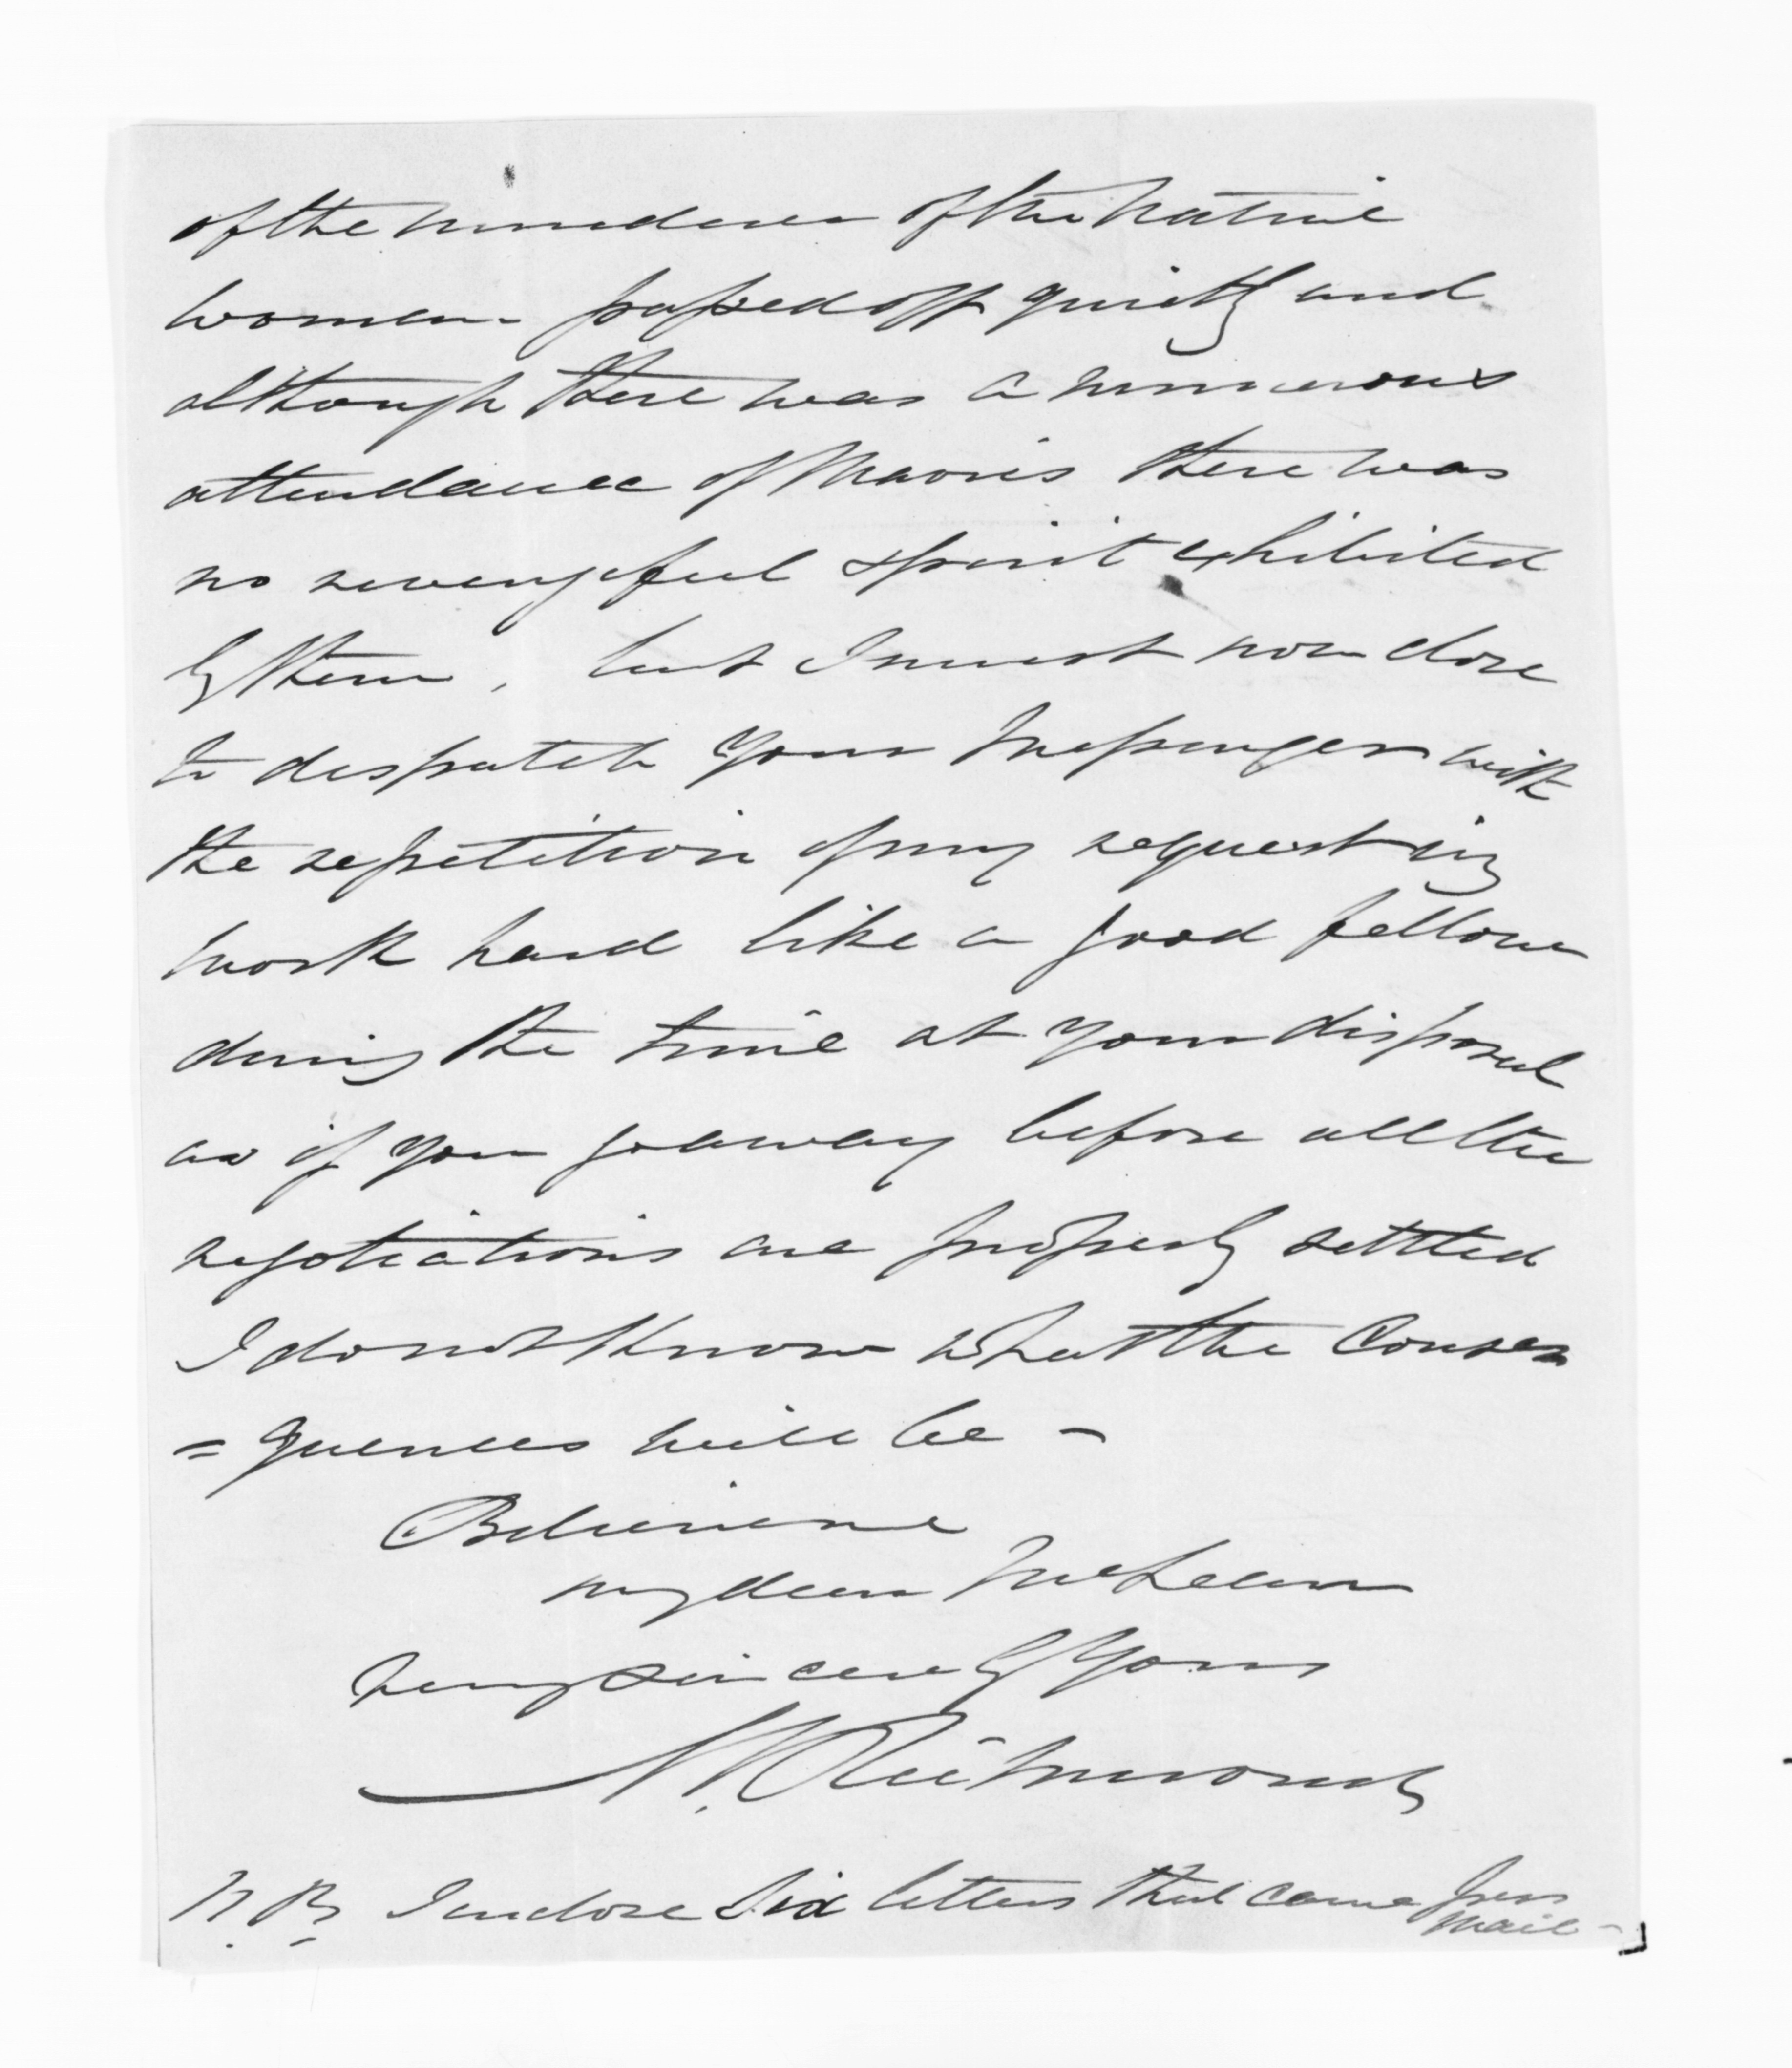 of the murderer of the Native
women - passed off quietly and
although there was a numerous
attendance of Maoris there was
no revengeful spirit exhibited
by them, but I must now close
to despatch your Messenger with
the repetition of my request viz
work hard like a good fellow
during the time at your disposal
as if you go away before all the
negotiations are properly settled
I do not know what the Conse
=quences will be -
Believe me
my dear McLean
very sincerely yours
M. Richmond
N.B. I enclose Six letters that came per
Mail -